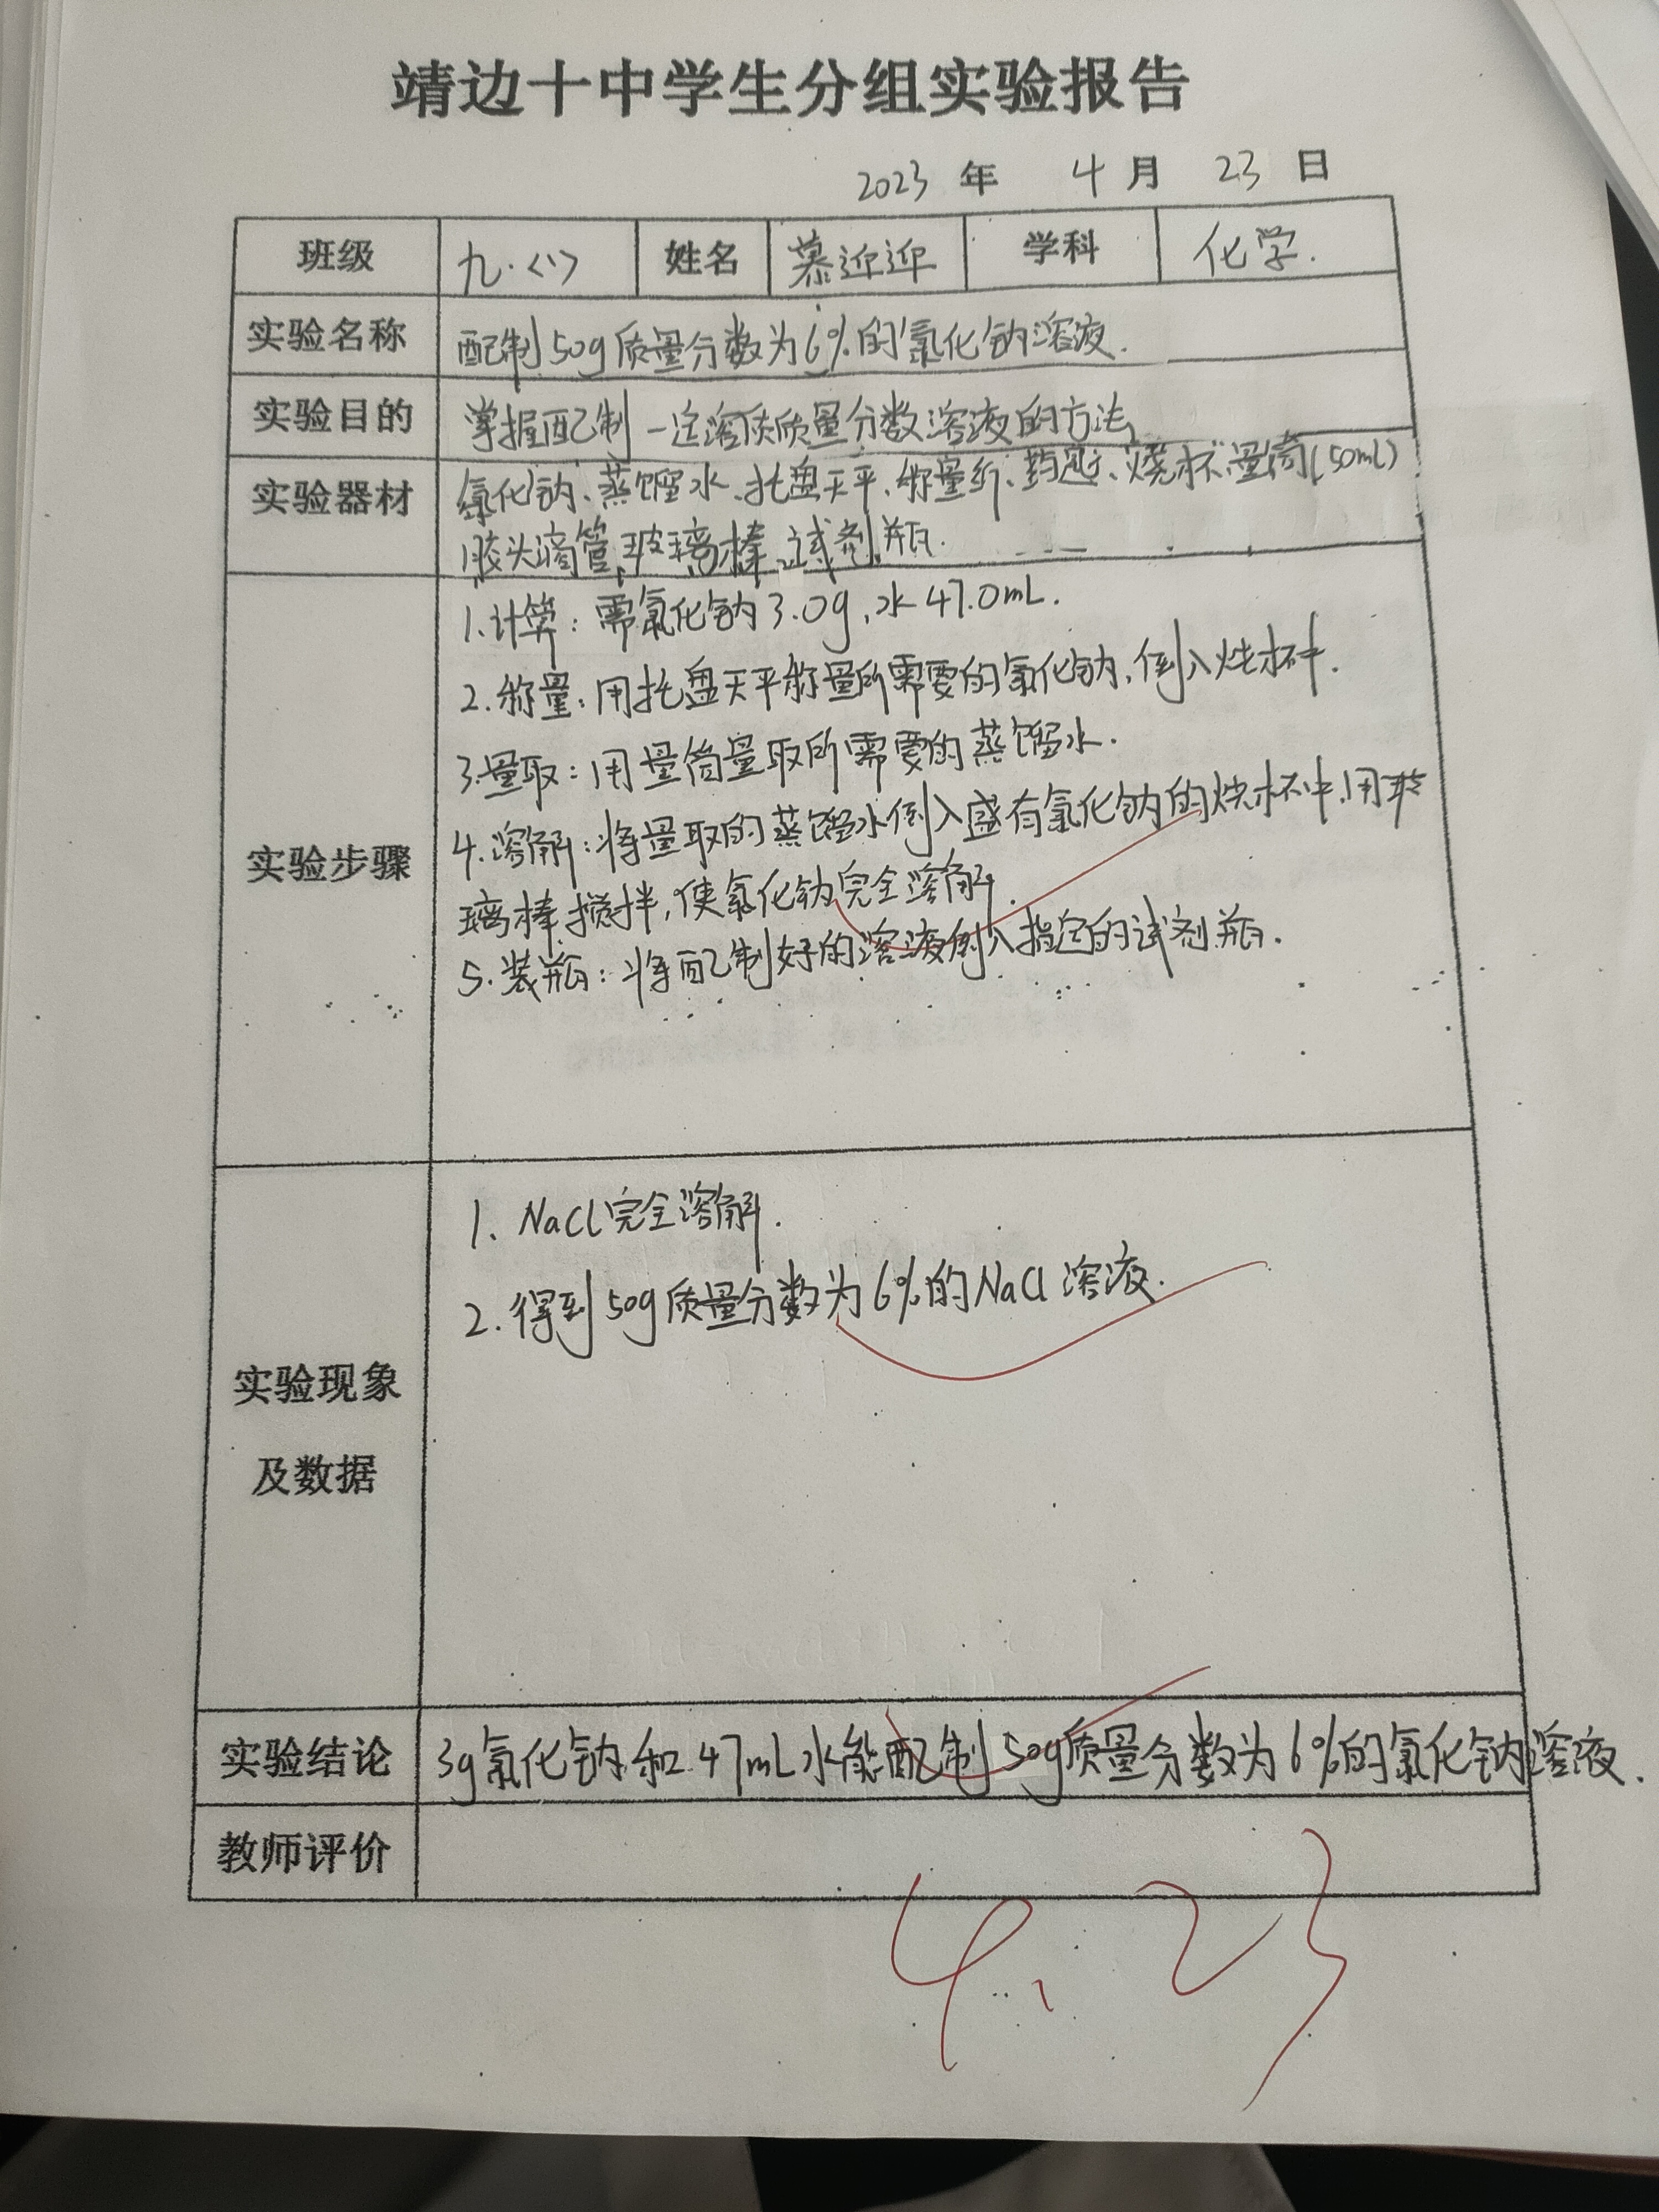 靖边十中学生分组实验报告
2023 年 4 月 23 日
班级 九.<1> 姓名 慕迎迎 学科 化学.
实验名称 配制50g质量分数为6%的氯化钠溶液.
实验目的 掌握配制一定溶质质量分数溶液的方法
实验器材 氯化钠、蒸馏水、托盘天平、称量纸、药匙、烧杯、量筒(50mL)
胶头滴管、玻璃棒、试剂瓶.
实验步骤
1.计算: 需氯化钠3.0g,水47.0mL.
2.称量:用托盘天平称量所需要的氯化钠,倒入烧杯中.
3.量取:用量筒量取所需要的蒸馏水.
4.溶解:将量取的蒸馏水倒入盛有氯化钠的烧杯中,用玻
璃棒搅拌,使氯化钠完全溶解.
5.装瓶:将配制好的溶液倒入指定的试剂瓶.
实验现象
及数据
1、NaCl完全溶解.
2.得到50g质量分数为6%的NaCl溶液.
实验结论 3g氯化钠和47mL水能配制50g质量分数为6%的氯化钠溶液.
教师评价
4.23